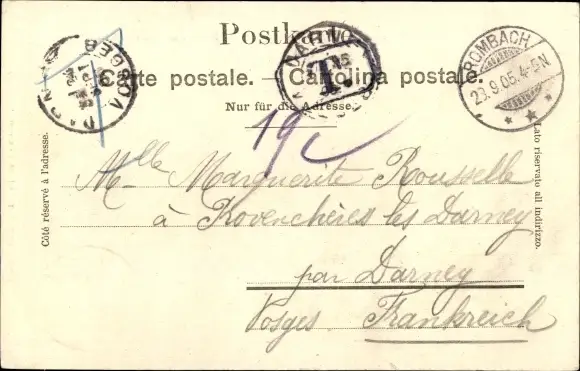 Postkarte
Carte postale. — Cartolina postale.
Nur für die Adresse.
DARNEY
VOSGES
DARNEY
T.
ROMBACH
23.9.05.4-5N
Côté réservé à l'adresse.
Lato riservato all indirizzo.
Mlle Marguerite Rousselle
à Rovenchères les Darney
par Darney
Vosges Frankreich